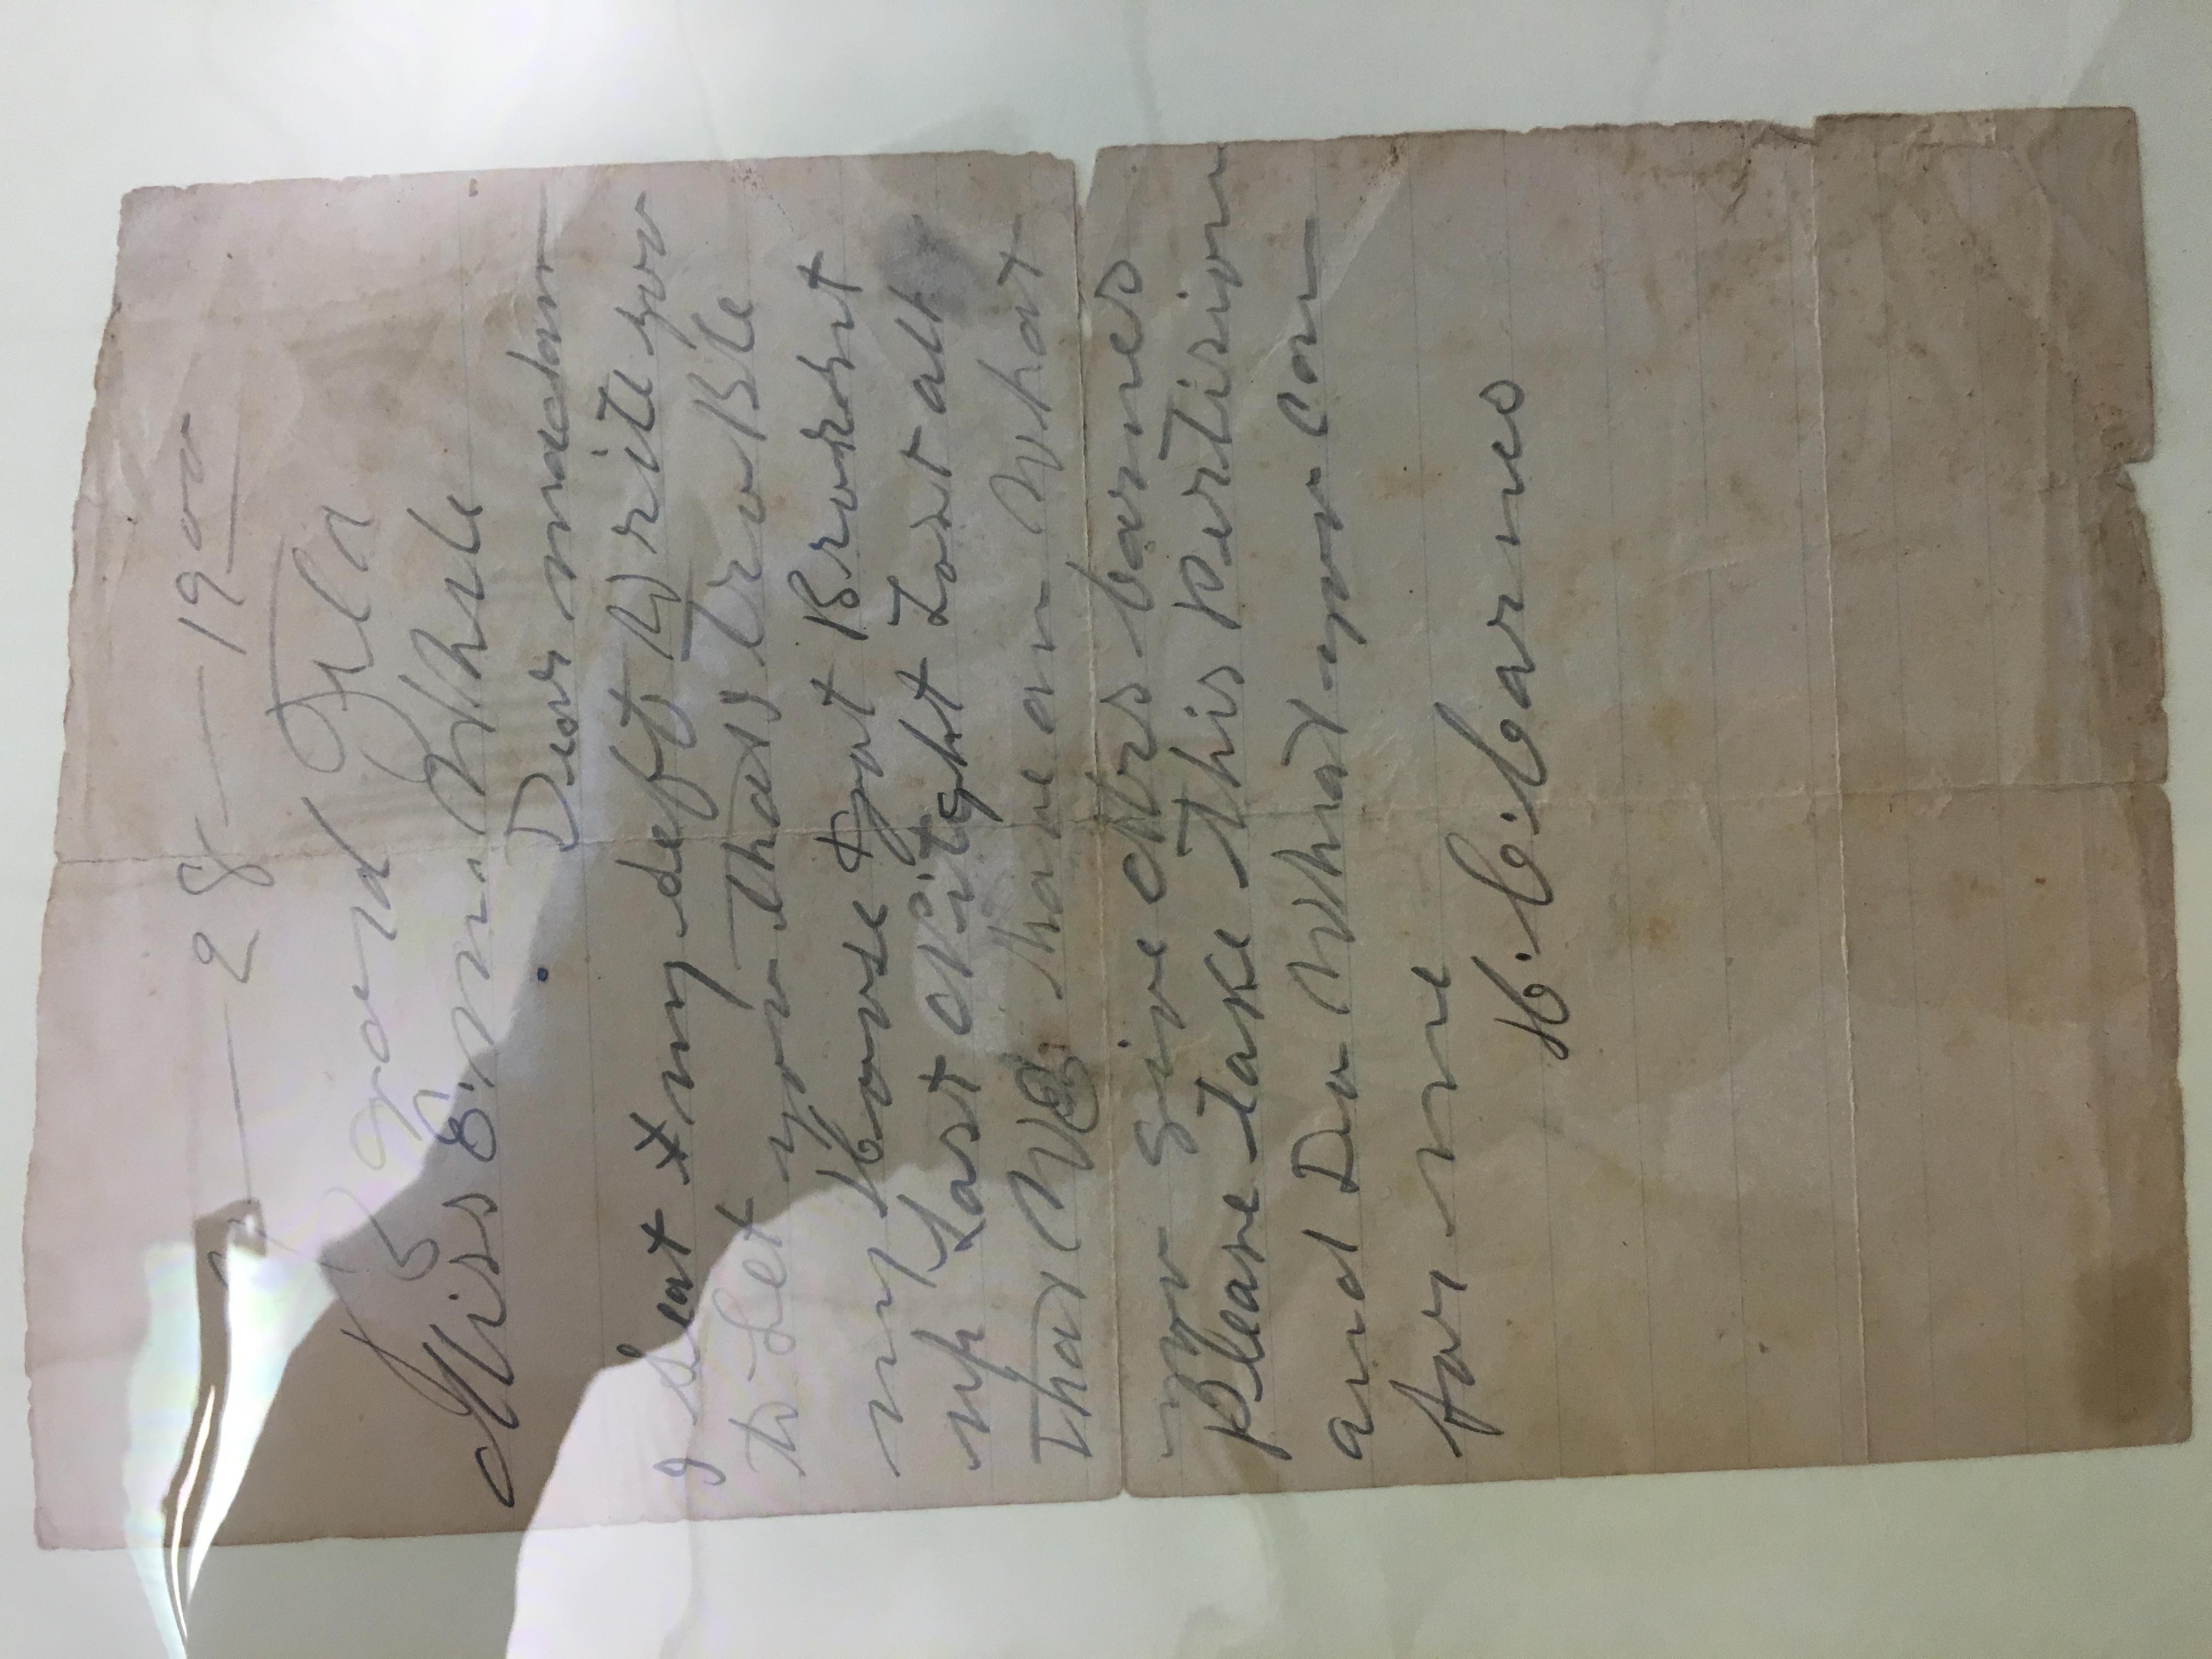 28 — 1900
Fla
Miss E. m. White
Dear madam
I Seat my Self to Write you
to Let you that I Troble
my House got
up Last Nitght Lost all
that We have an What
you give Mrs barnes
Please take this Pertision
and Do What you Can
for me
H. C. barnes